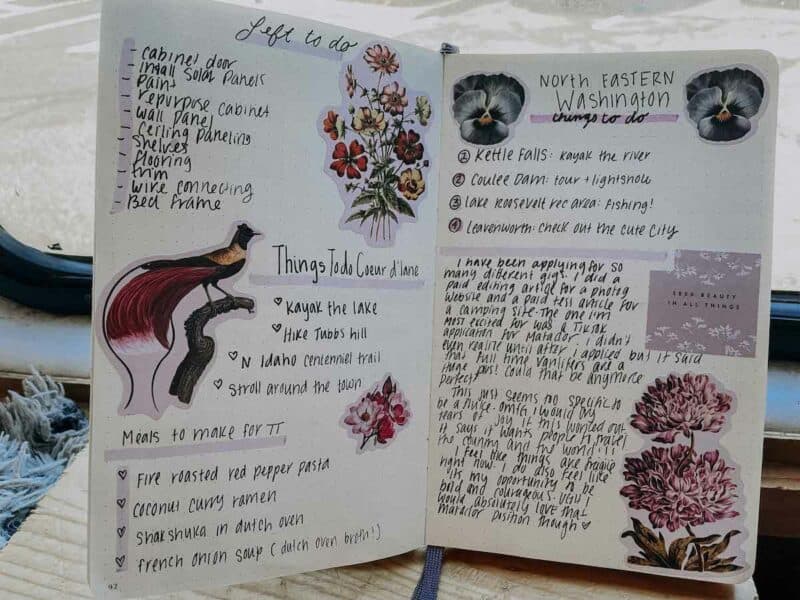 Left to do
- cabinet door
- intall solar panels
- paint
- repurpose cabinet
- wall panel
- cerling paneling
- shelves
- flooring
- trim
- wire connecting
- Bed frame
Things Todo Coeur d'lane
Kayak the lake
Hike Tubbs hill
N Idaho centenniel trail
Stroll around the town
Meals to make for TT
Fire roasted red pepper pasta
coconut curry ramen
shakshuka in dutch oven
french onion soup (dutch oven broth!)
92
North Eastern
Washington
things to do
1 Kettle Falls: kayak the river
2 Coulee Dam: tour + lightshow
3 Lake Roosevelt rec area: fishing!
4 Leavenworth: check out the cute city
I have been applying for so
many different gigs. I did a
paid editing article for a photog
website and a paid test article for
a camping site. The one I'm
most excited for was a Tiktok
application for Matador. I didn't
even realize until after I applied but it said
that full time vanlifers are a
huge plus! Could that be anymore
perfect
This just seems so specific to
be a fluke. omg, I would cry
tears of joy if this worked out
It says it wants people to travel
the country and the world!!!
I feel like things are fragile
right now. I do also feel like
its my opportunity to be
bold and courageous. Ugh I
would absolutely love that
matador position though
SEEK BEAUTY
IN ALL THINGS